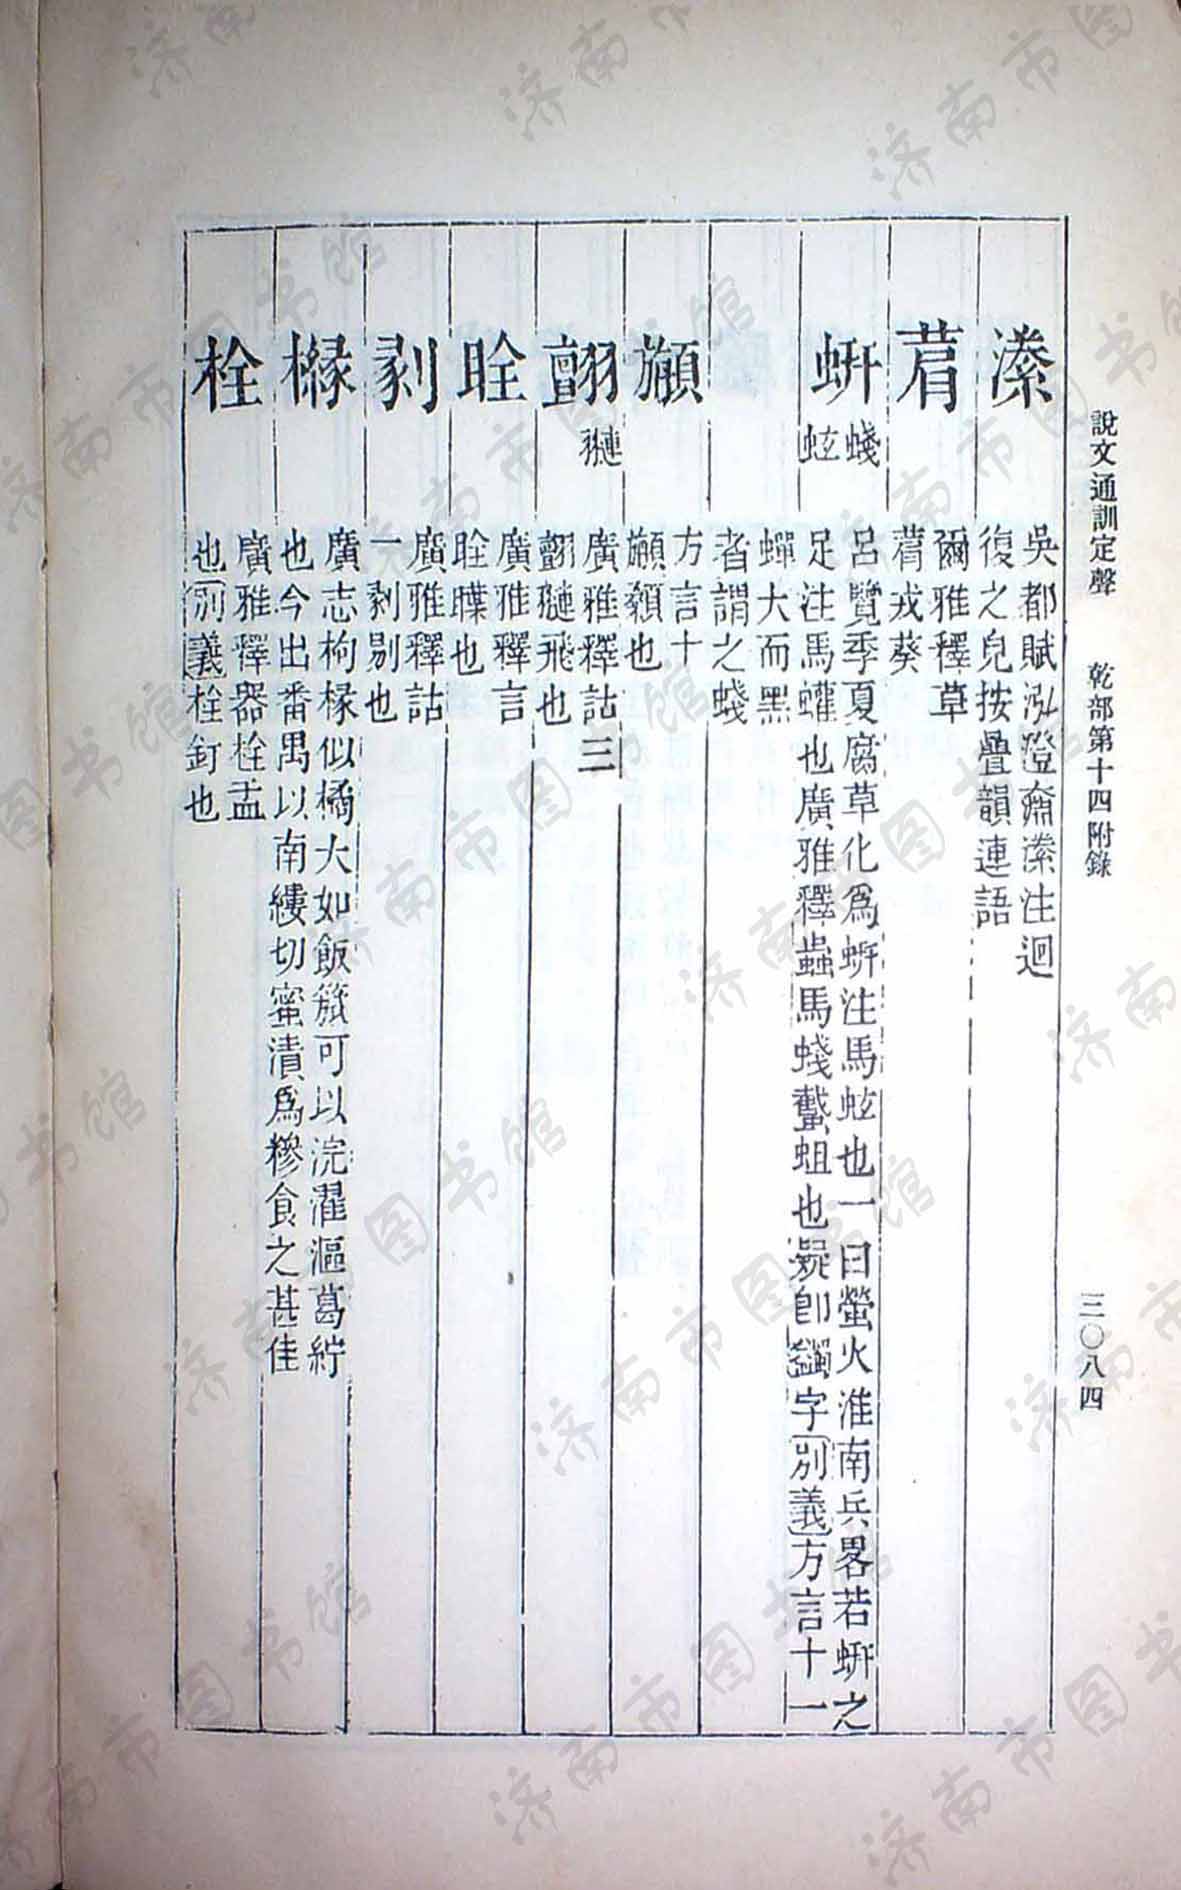 說文通訓定聲 乾部第十四附錄 三〇八四
潫
吳都賦泓澄奫潫注迴
復之皃按疊韻連語
菺
爾雅釋草
菺戎葵
蚈
蝬
蚿
呂覽季夏腐草化為蚈注馬蚿也一曰螢火淮南兵畧若蚈之
足注馬蠸也廣雅釋蟲馬蝬蠽蛆也疑卽蠲字別義方言十一
蟬大而黑
者謂之蝬
顢
方言十
顢顙也
翧
翴
廣雅釋詁三
翧翴飛也
晊
廣雅釋言
晊曗也
剶
廣雅釋詁
一剶剔也
櫞
廣志枸櫞似橘大如飯筥可以浣濯漚葛紵
也今出番禺以南縷切蜜漬為糝食之甚佳
栓
廣雅釋器栓盂
也別義栓釘也